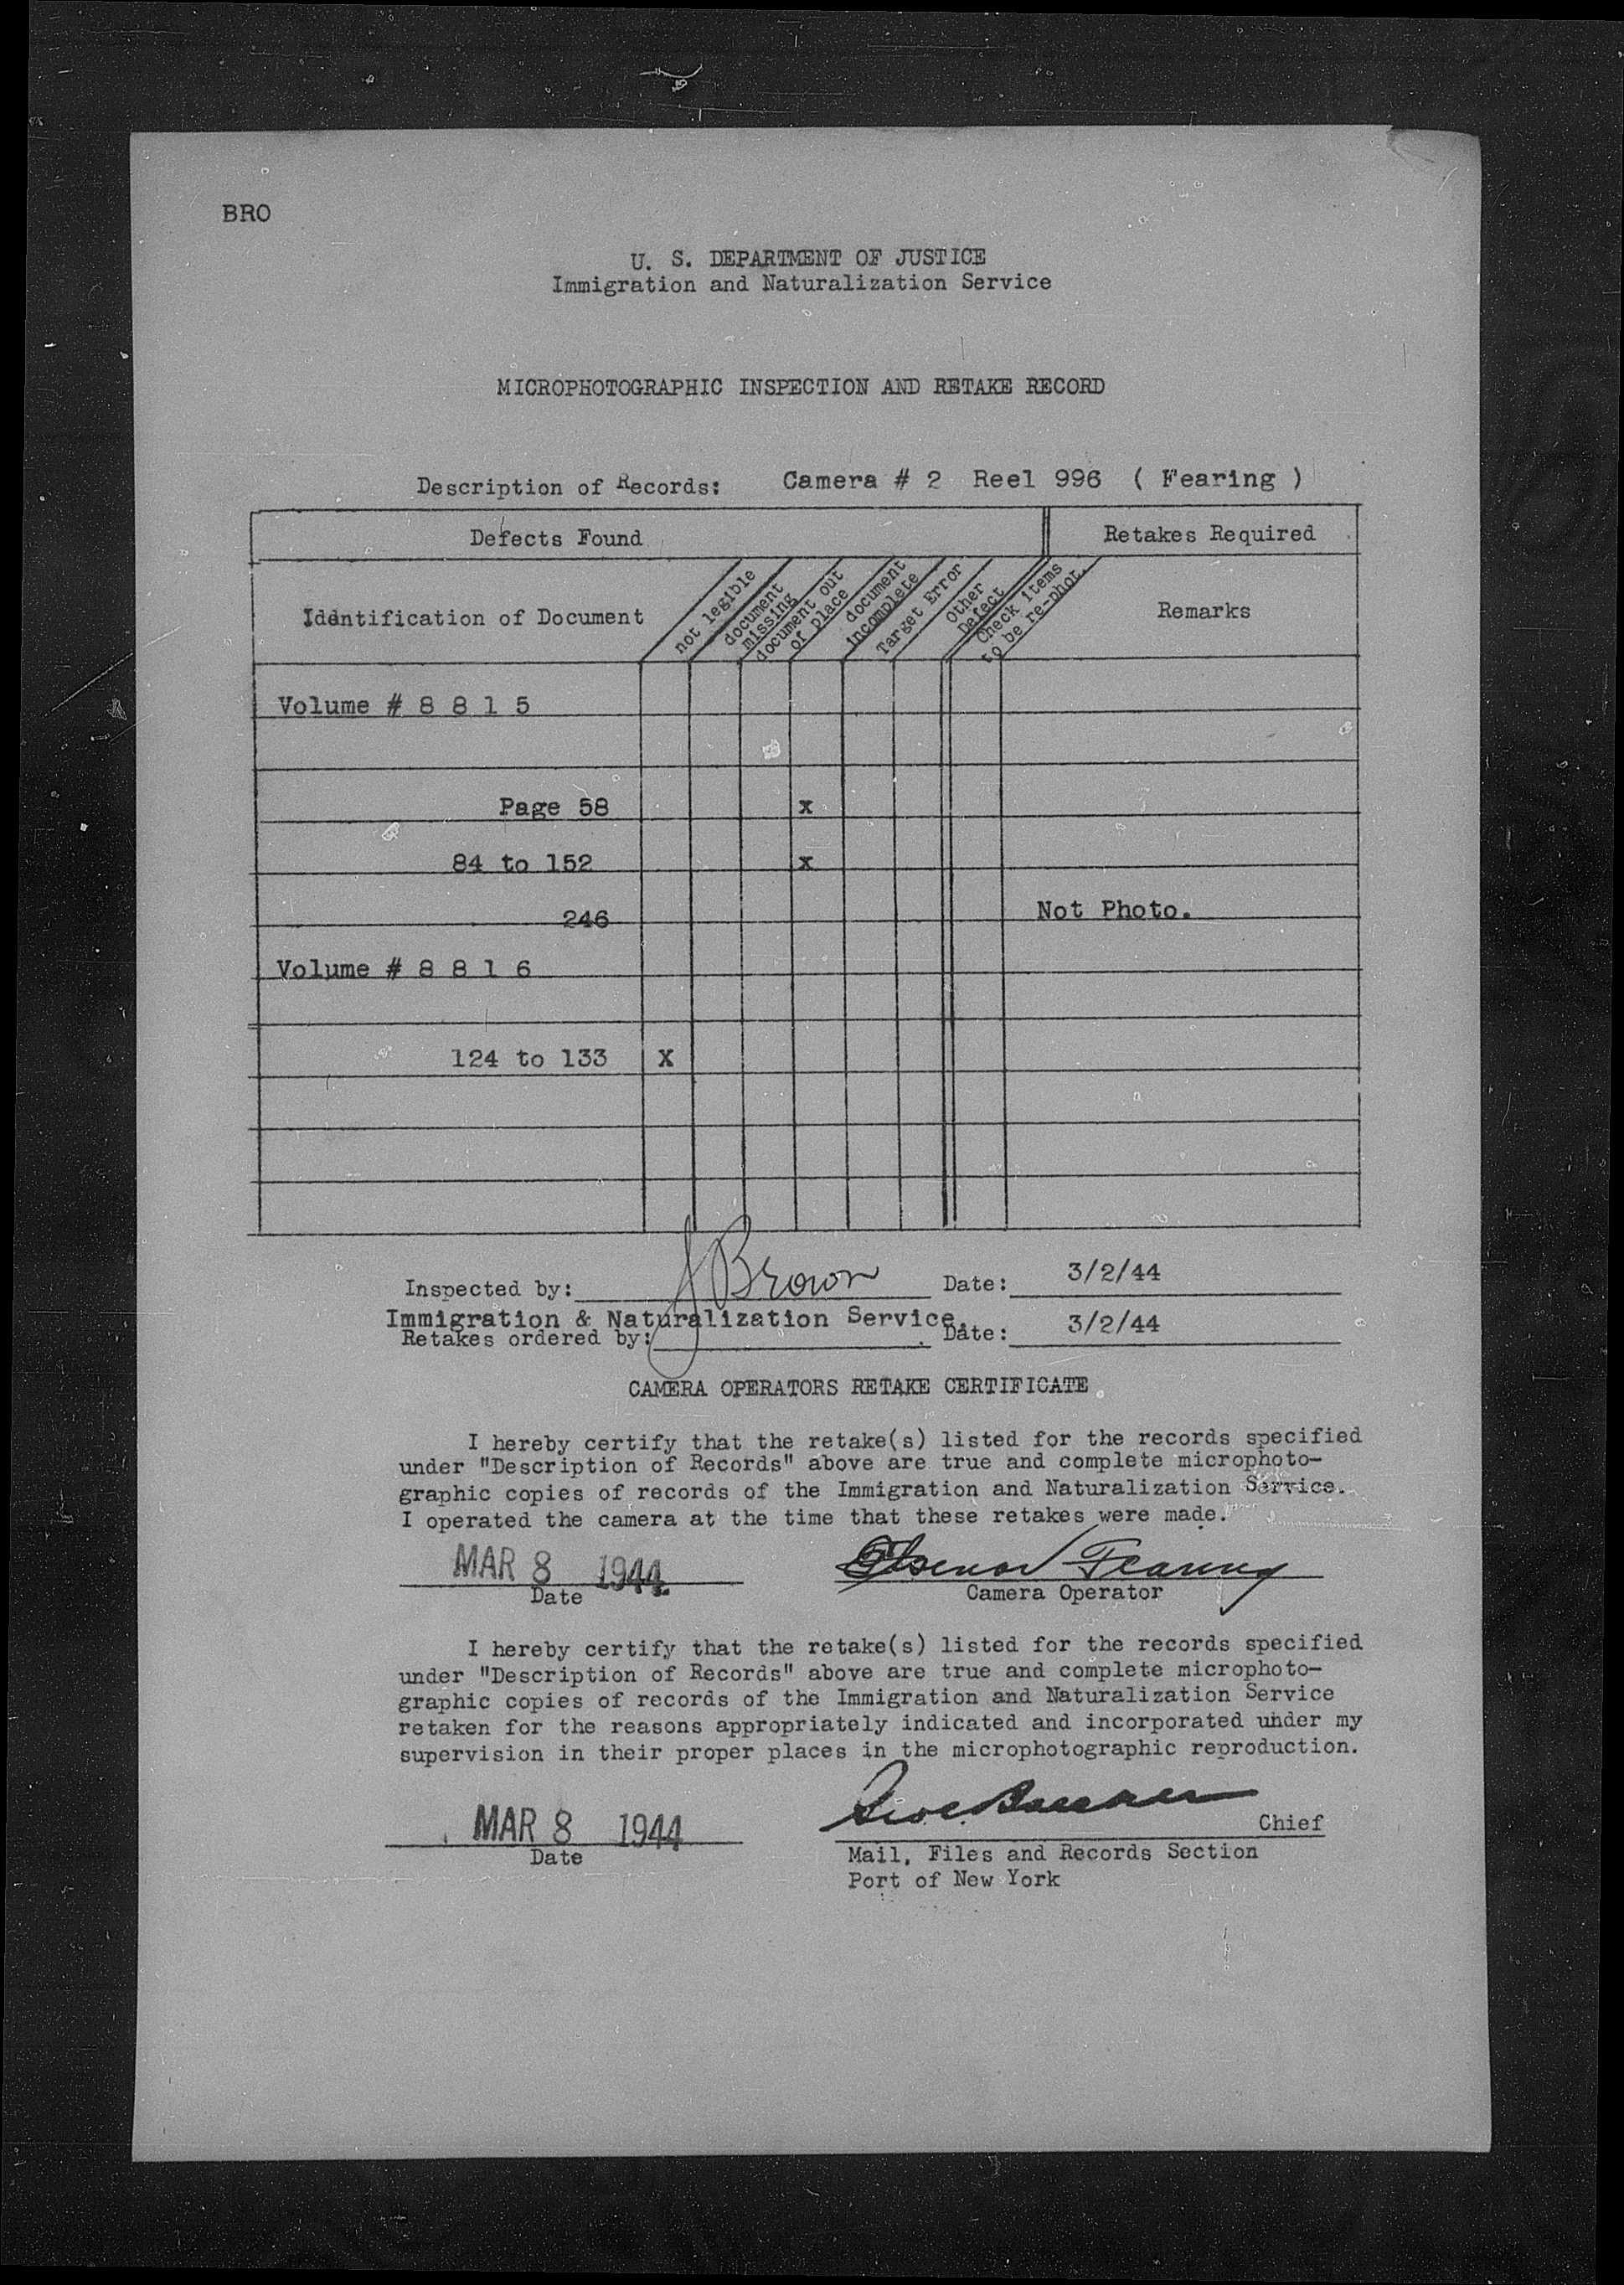 BRO
U. S. DEPARTMENT OF JUSTICE
Immigration and Naturalization Service
MICROPHOTOGRAPHIC INSPECTION AND RETAKE RECORD
Description of Records: Camera # 2 Reel 996 ( Fearing )
Defects Found
Retakes Required
Identification of Document
not legible
document
missing
document out
of place
document
incomplete
Target Error
Other
Defect
Check items
to be re-phot.
Remarks
Volume # 8 8 1 5
Page 58 x
84 to 152 x
246 Not Photo.
Volume # 8 8 1 6
124 to 133 X
Inspected by: J Brown Date: 3/2/44
Immigration & Naturalization Service.
Retakes ordered by: Date: 3/2/44
CAMERA OPERATORS RETAKE CERTIFICATE
I hereby certify that the retake(s) listed for the records specified
under "Description of Records" above are true and complete microphoto-
graphic copies of records of the Immigration and Naturalization Service.
I operated the camera at the time that these retakes were made.
MAR 8 1944
Date
Fearing
Camera Operator
I hereby certify that the retake(s) listed for the records specified
under "Description of Records" above are true and complete microphoto-
graphic copies of records of the Immigration and Naturalization Service
retaken for the reasons appropriately indicated and incorporated under my
supervision in their proper places in the microphotographic reproduction.
MAR 8 1944
Date
Chief
Mail, Files and Records Section
Port of New York